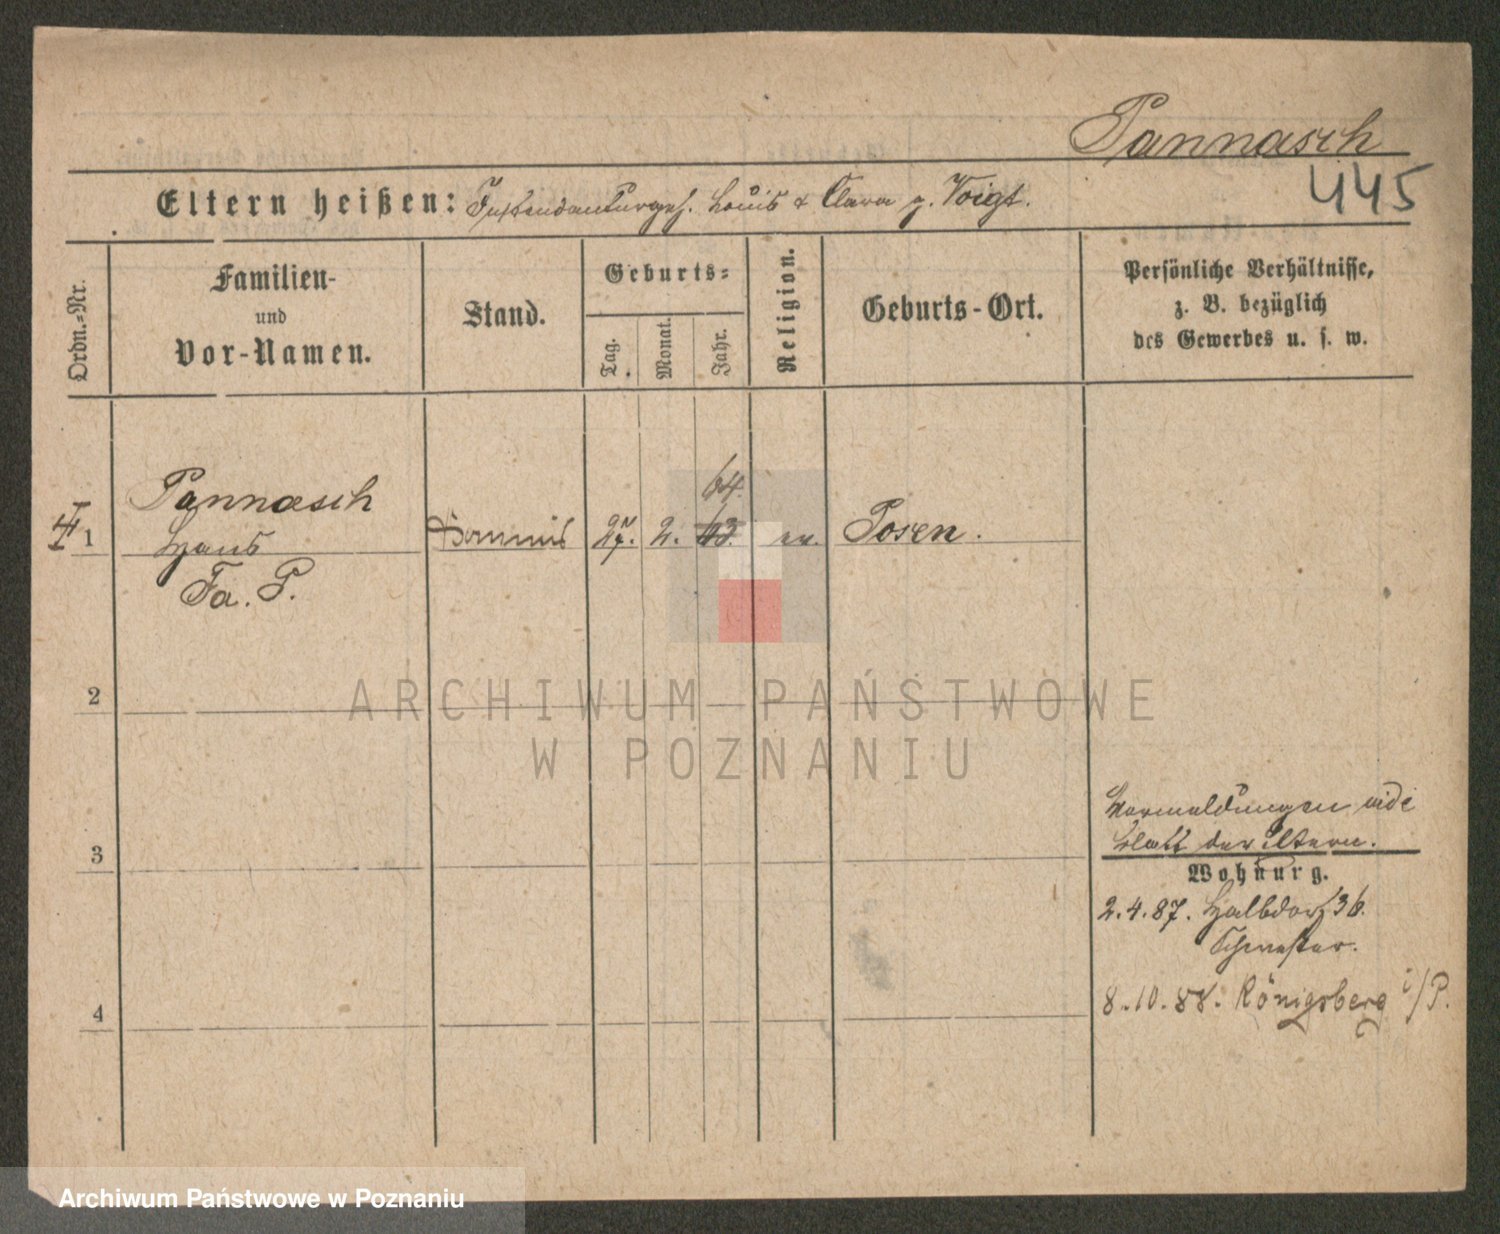 Pannasch
445
Eltern heißen: Intendanturgeh. Louis & Clara g. Voigt.
Ordn.-Nr.
Familien-
und
Vor-Namen.
Stand.
Geburts-
Tag.
Monat.
Jahr.
Religion.
Geburts-Ort.
Persönliche Verhältnisse,
z. B. bezüglich
des Gewerbes u. s. w.
1 Pannasch
Hans
Fa. P.
Commis
27. 2. 63. 64.
ev.
Posen.
2
3
4
ARCHIWUM PAŃSTWOWE
W POZNANIU
Vormeldungen vide
Blatt der Eltern.
Wohnung.
2.4.87. Halbdorf 36.
Schwester.
8.10.88. Königsberg i/P.
Archiwum Państwowe w Poznaniu